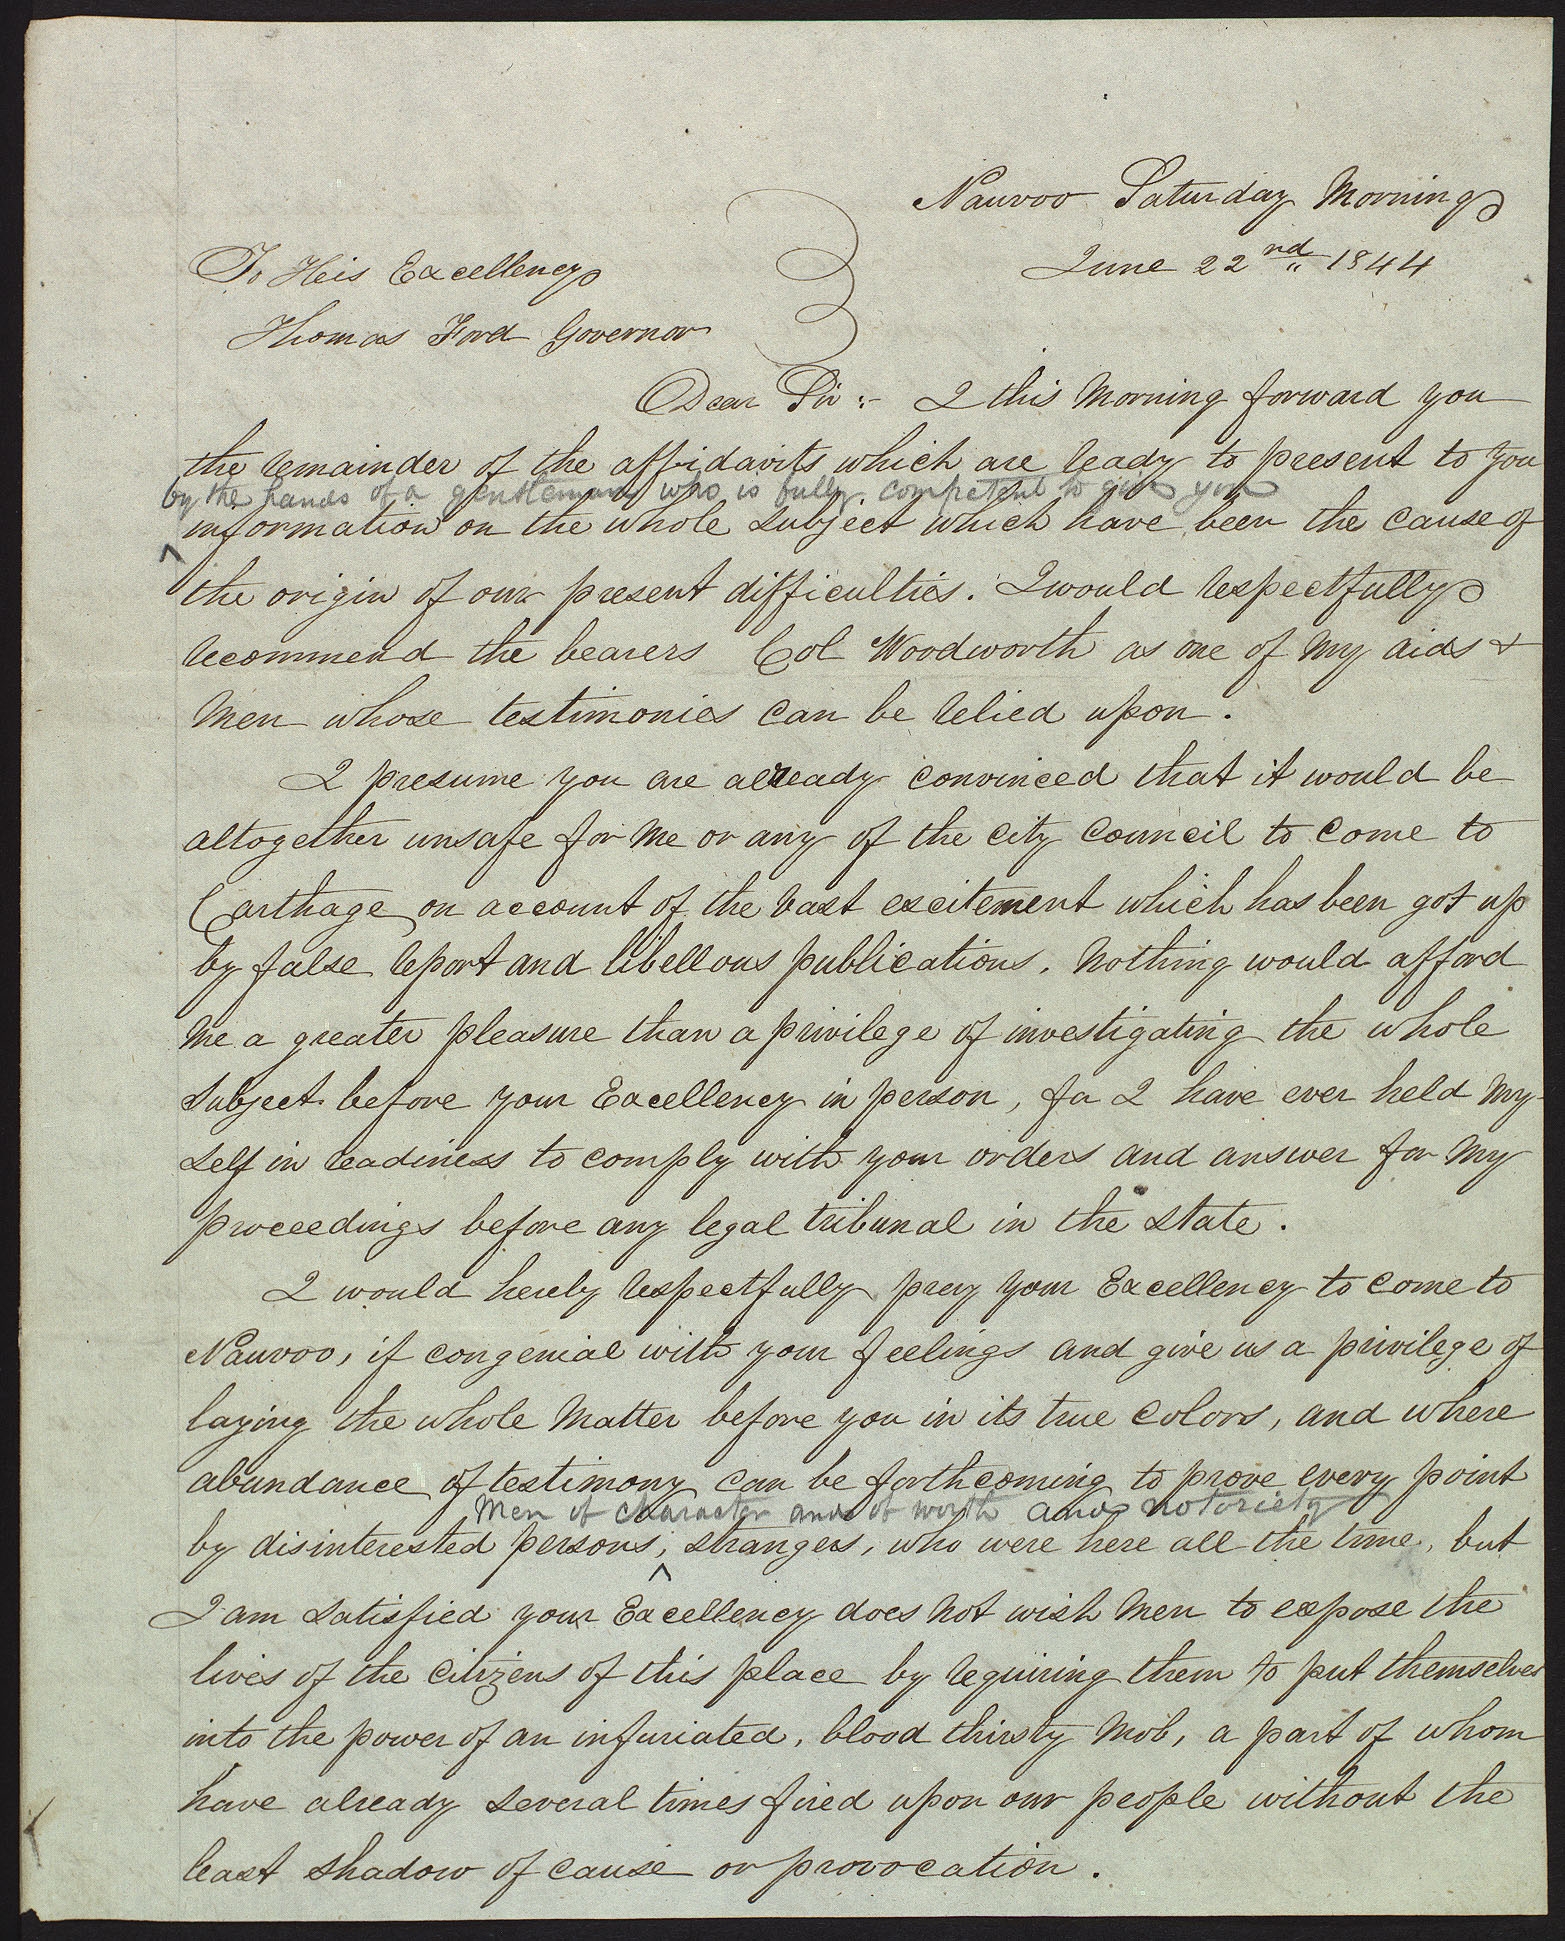 Nauvoo Saturday Morning
June 22nd 1844
To Heis Excellency
Thomas Ford Governor
Dear Sir :- I this Morning forward you
the remainder of the affidavits which are ready to present to you
by the hands of a gentleman who is fully competent to give you
^ information on the whole subject which have been the cause of
the origin of our present difficulties. I would respectfully
recommend the bearers Col Woodworth as one of my aids &
Men whose testimonies can be relied upon.
I presume you are already convinced that it would be
altogether unsafe for me or any of the city Council to come to
Carthage on account of the vast excitement which has been got up
by false report and libellous publications. Nothing would afford
me a greater pleasure than a privilege of investigating the whole
subject before your Excellency in person, for I have ever held my-
self in readiness to comply with your orders and answer for my
proceedings before any legal tribunal in the state.
I would hereby respectfully pray your Excellency to come to
Nauvoo, if congenial with your feelings and give us a privilege of
laying the whole Matter before you in its true colors, and where
abundance of testimony can be forthcoming to prove every point
Men of character and of worth and notoriety
by disinterested persons, ^ strangers, who were here all the time, but
I am satisfied your Excellency does not wish Men to expose the
lives of the citizens of this place by requiring them to put themselves
into the power of an infuriated, blood thirsty Mob, a part of whom
have already several times fired upon our people without the
least shadow of cause or provocation.